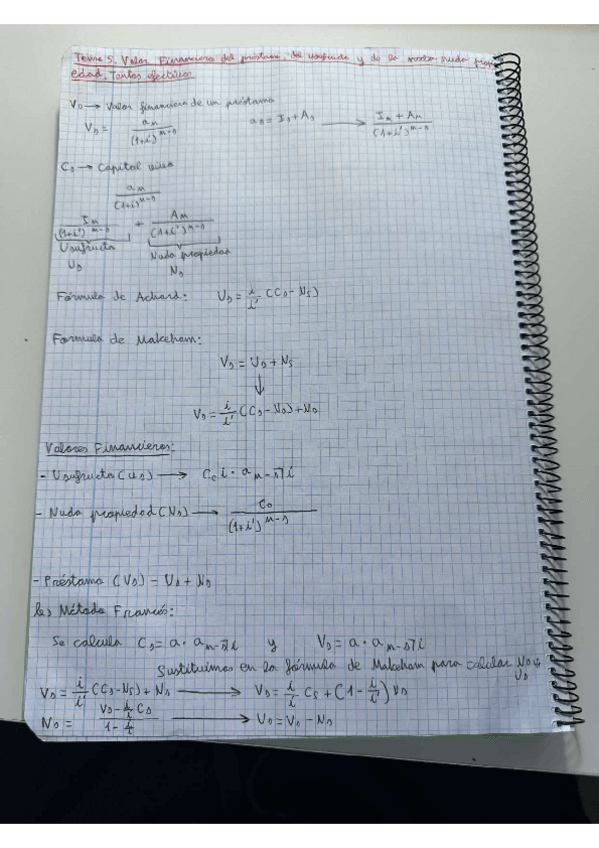 Tema 5. Valor Financiero del préstamo, del usufructo y de la nuda propi
edad. Tantos efectivos
Vs → Valor financiero de un préstamo
Vs = am / (1+i')^m-s   as = Is + As → Im + Am / (1+i')^m-s
Cs → Capital vivo
am / (1+i)^m-s
Im / (1+i')^m-s + Am / (1+i')^m-s
Usufructo   Nuda propiedad
Us   Ns
Fórmula de Achard: Us = i/i' (Cs - Ns)
Formula de Makeham:
Vs = Us + Ns
↓
Vs = i/i' (Cs - Ns) + Ns
Valores Financieros:
- Usufructo (us) → Cs i · a m-s⌉i
- Nuda propiedad (Ns) → Co / (1+i')^m-s
- Préstamo (Vs) = Us + Ns
Método Francés:
Se calcula Cs = a · a m-s⌉i y Vs = a · a m-s⌉i
Sustituimos en la fórmula de Makeham para calcular Ns y
Us
Vs = i/i' (Cs - Ns) + Ns → Vs = i/i' Cs + (1 - i/i') Ns
Ns = Vs - i/i' Cs / 1 - i/i' → Us = Vs - Ns